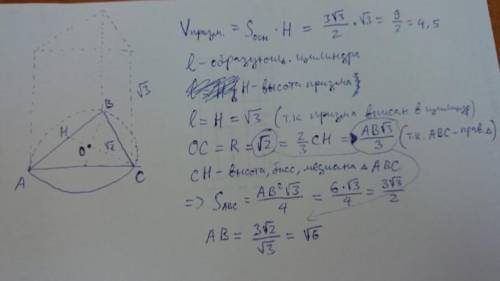 Vпризм. = Sосн · H = 3√3/2 · √3 = 9/2 = 4,5
l - образующ. цилиндра
H - высота призма}
l = H = √3 (т.к призма вписан в цилиндр)
OC = R = √2 = 2/3 CH = AB√3/3 (т.к. ABC - прав Δ)
CH - высота, бисс, медиана Δ ABC
=> SABC = AB²√3/4 = 6·√3/4 = 3√3/2
AB = 3√2/√3 = √6
√3
B
H
O
√2
A
C